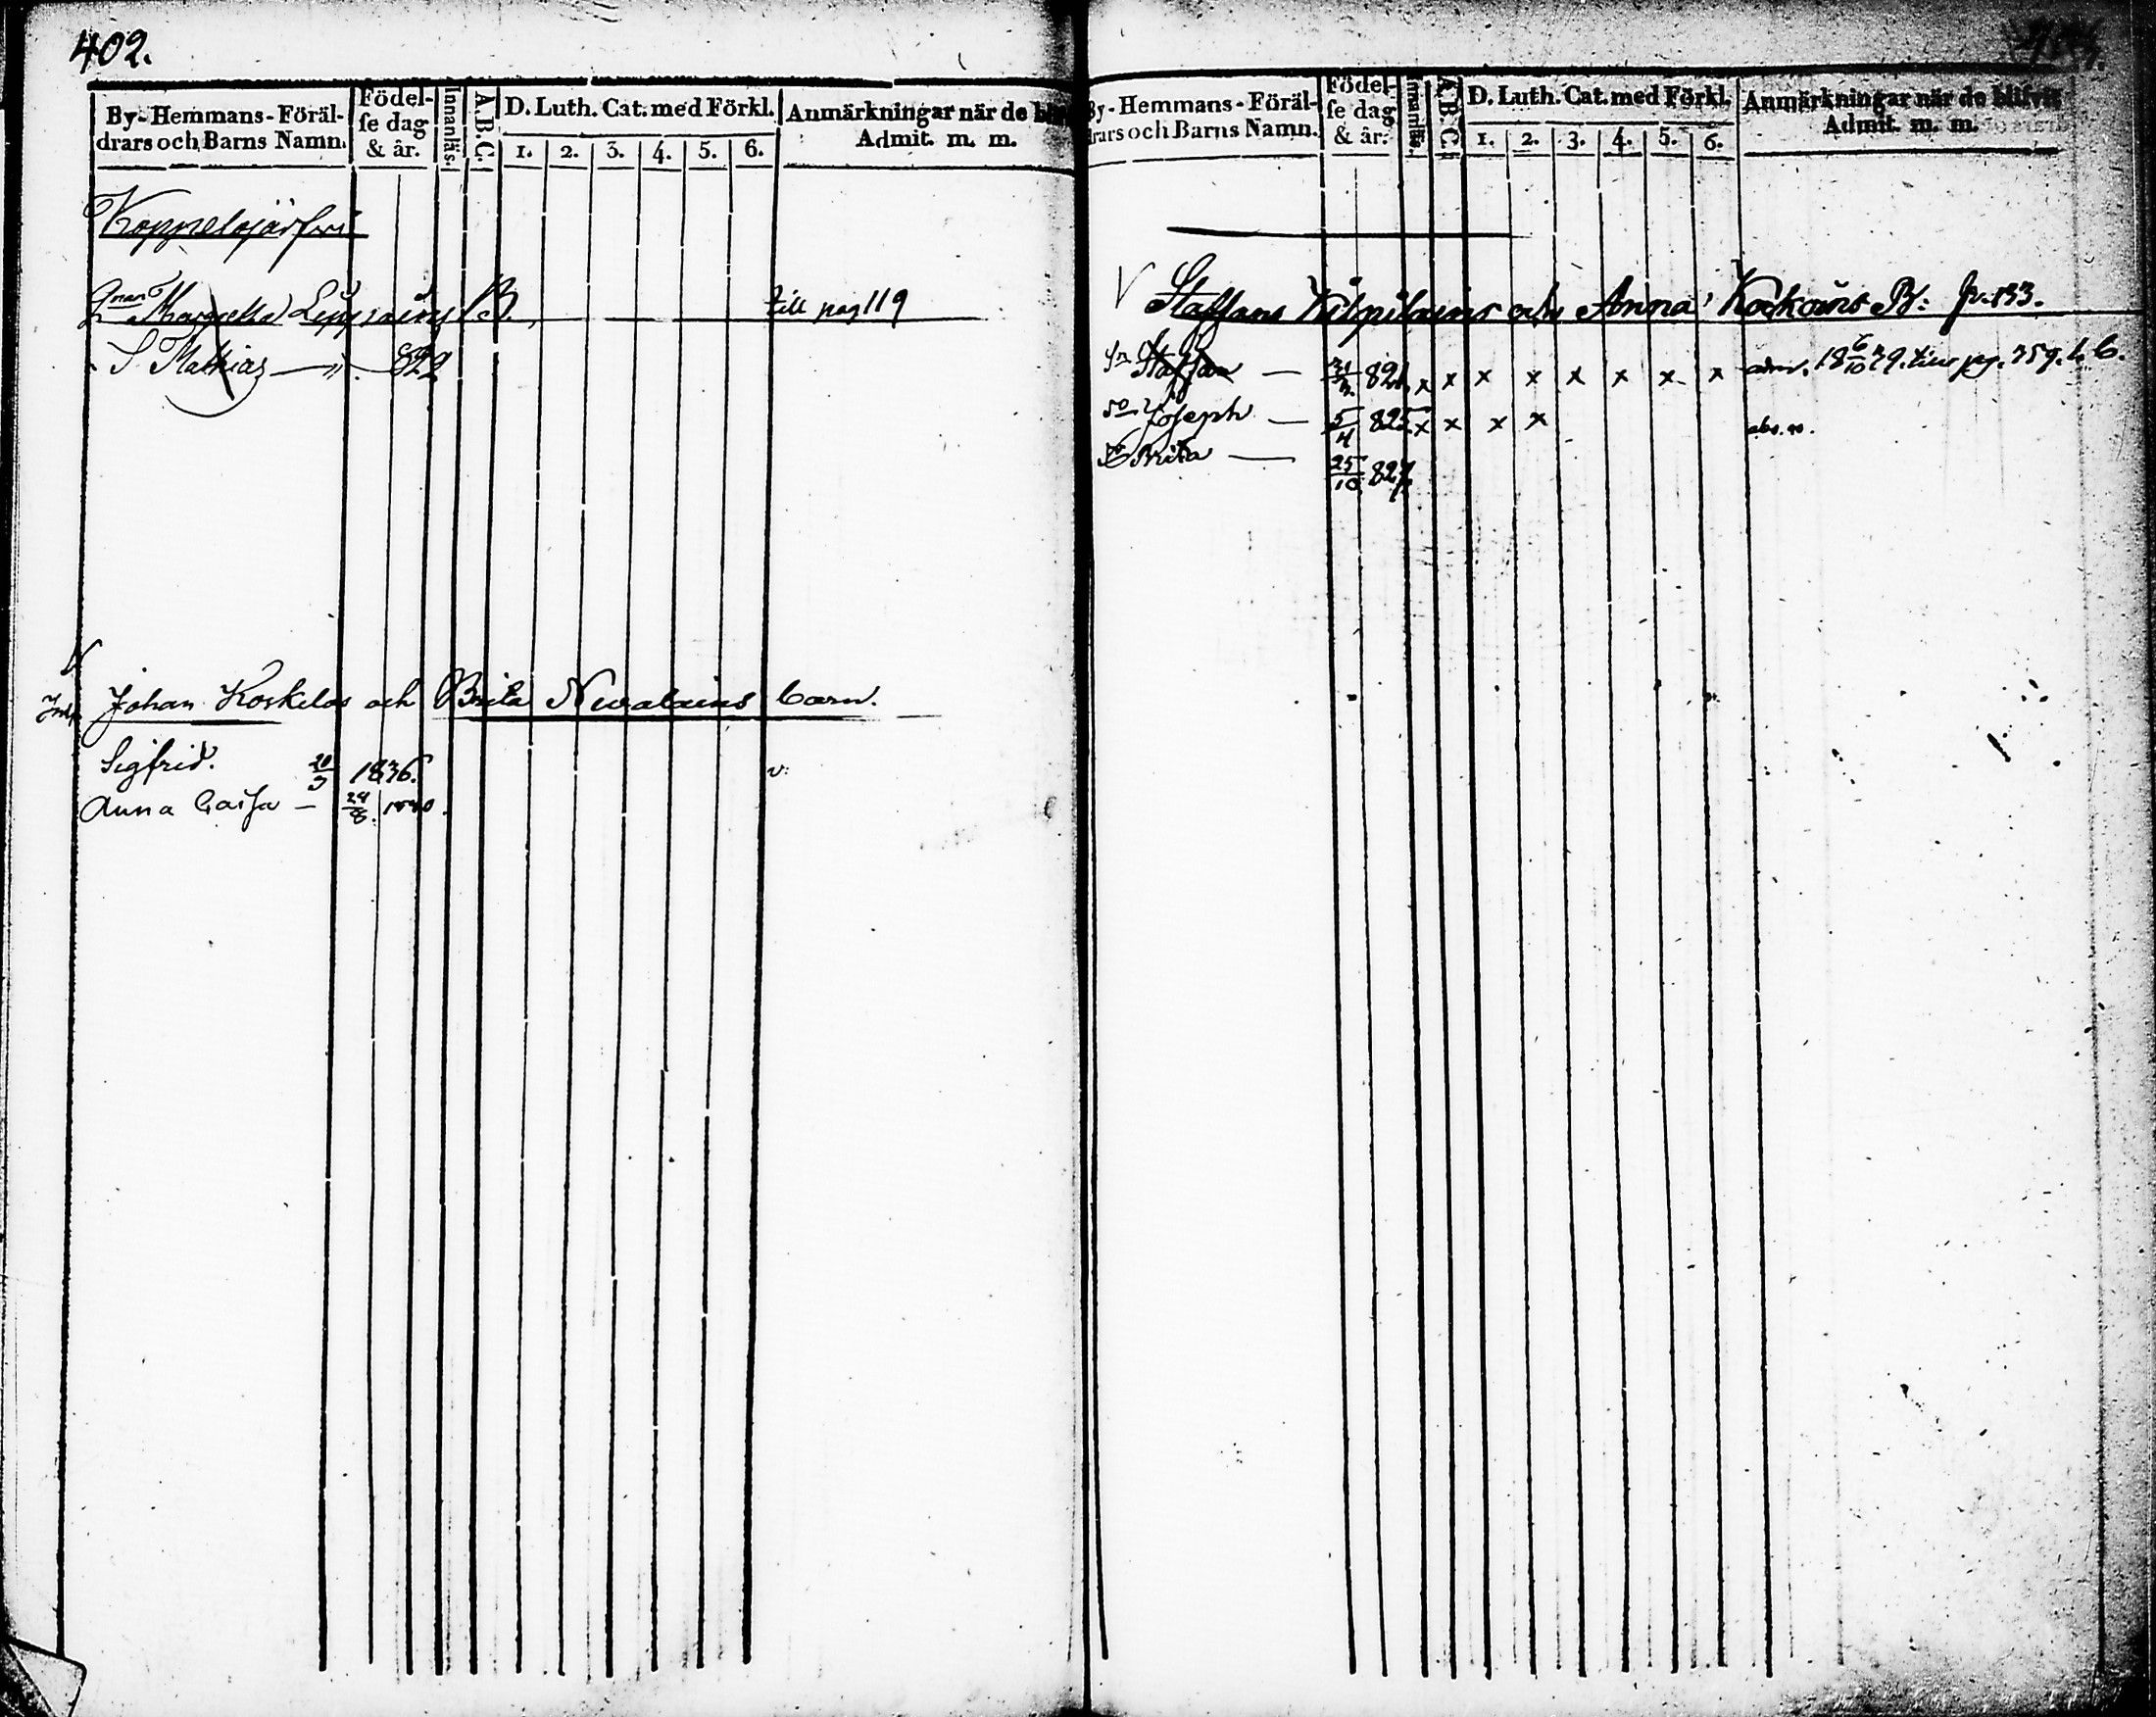 402.
By-Hemmans-Föräl-
drars och Barns Namn.
Födel-
se dag
& år.
Innanläs.
A.B.C.
D. Luth. Cat. med Förkl.
1. 2. 3. 4. 5. 6.
Anmärkningar när de
Admit. m. m.
Koppelojärfvi
B. till pag 119
S Mathias — " — 822
Johan Koskelos och Brita Nivalains barn.
Sigfrid. 1836. v:
Anna Caisa — 24/8. 1840.
By-Hemmans-Föräl-
drars och Barns Namn.
Födel-
se dag
& år.
Innanläs.
A.B.C.
D. Luth. Cat. med Förkl.
1. 2. 3. 4. 5. 6.
Anmärkningar när de blifvit
Admit. m. m.
V Staffans Kilpilains och Anna Kockoins B: fr. 133.
Staffan — 821 x x x x x x x x adm. 18 6/10 39. pg. 359.
Joseph — 5/4 825 x x x x abs.
Brita — 25/10 827